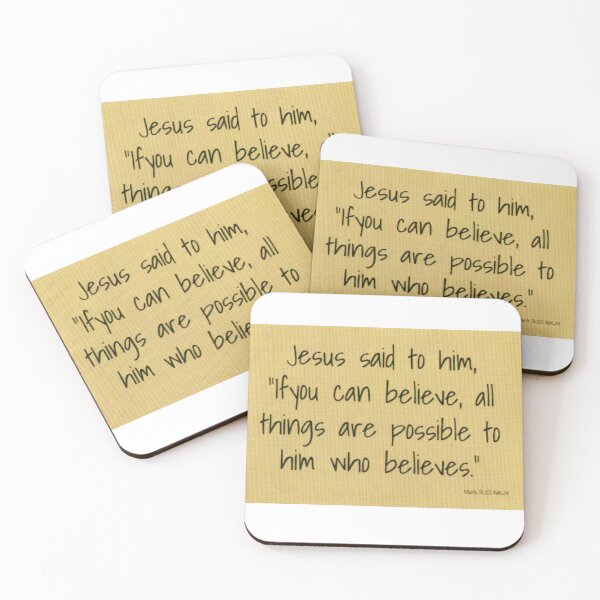 Jesus said to him,
"Ifyou can believe,
things
Jesus said to him,
"Ifyou can believe, all
things are possible to
him who believes."
Mark 9:23 NKJV
Jesus said to him,
"Ifyou can believe, all
things are possible to
him who
Jesus said to him,
"Ifyou can believe, all
things are possible to
him who believes."
Mark 9:23 NKJV